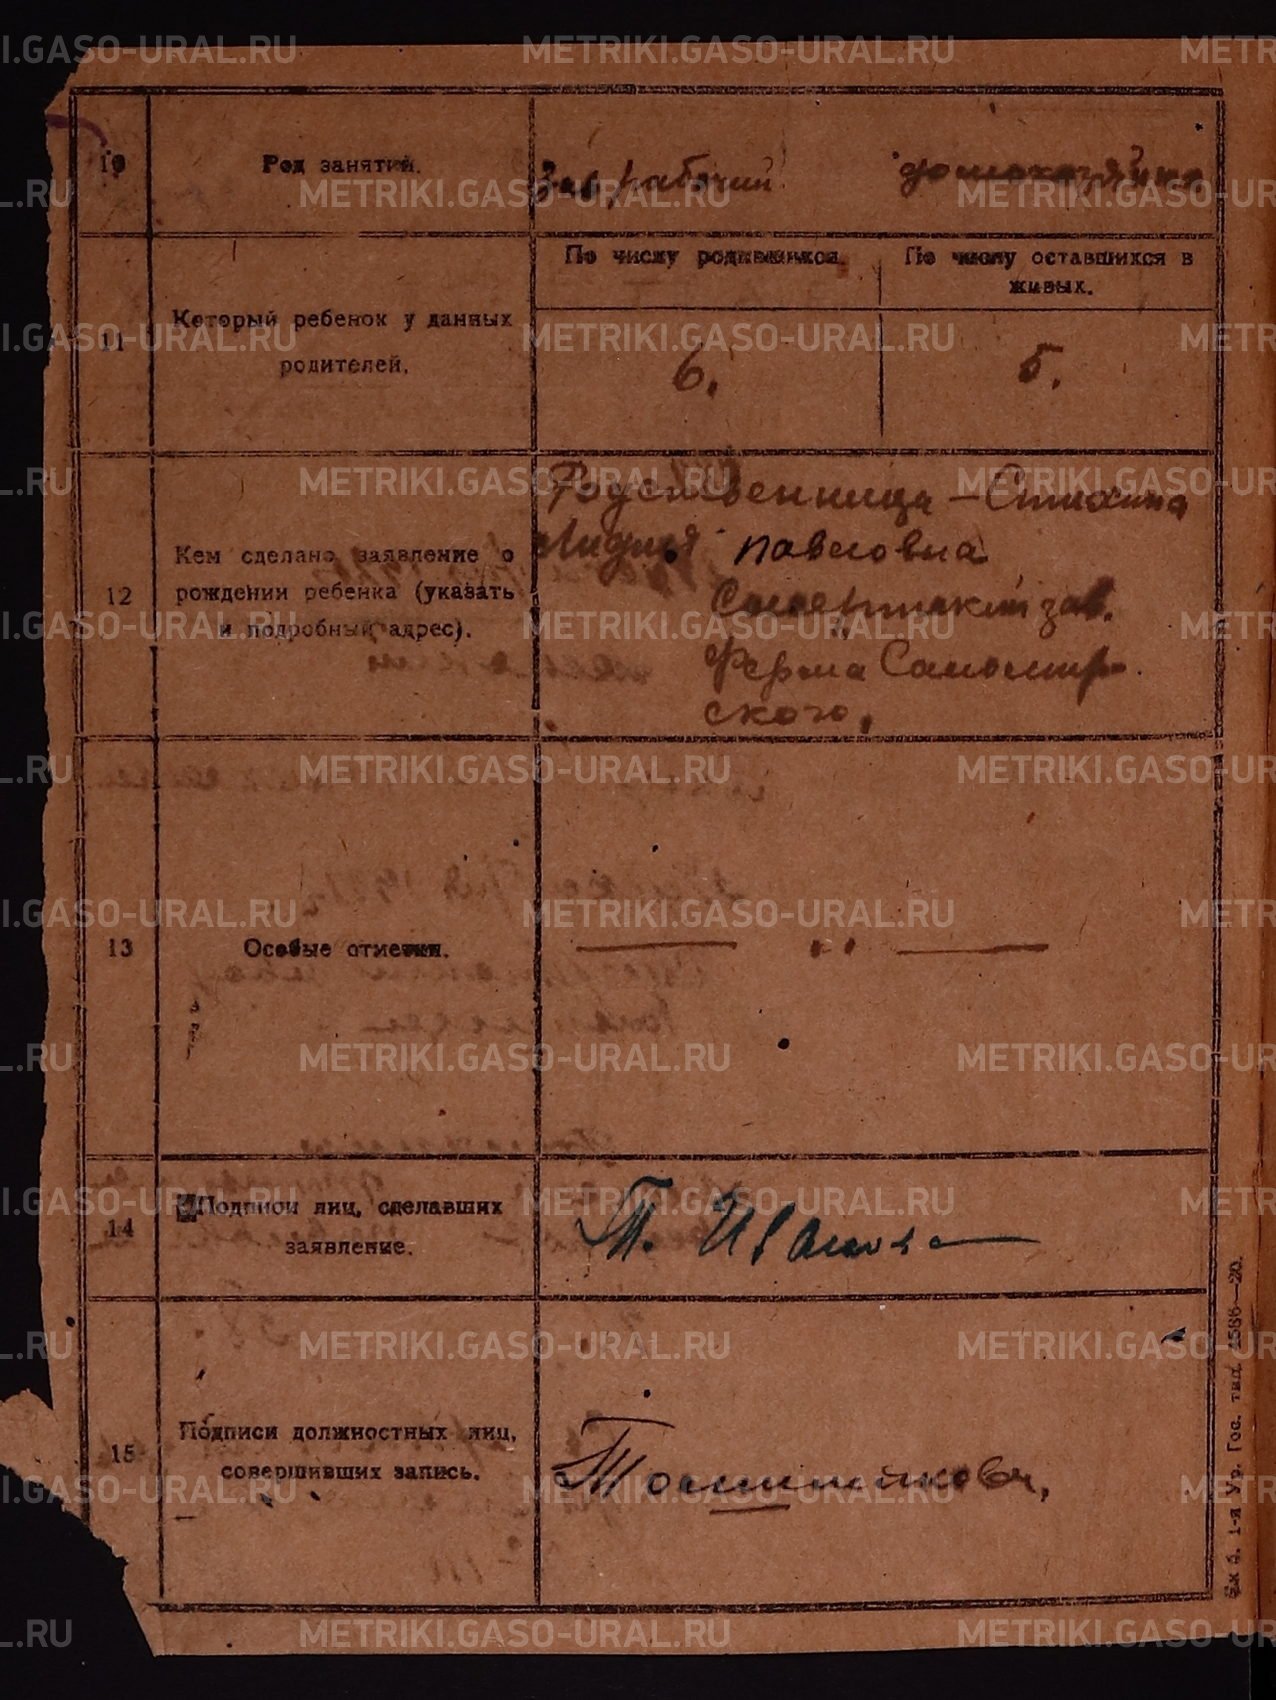 10
Род занятий.
Зав, рабочий
домохозяйка
11
Который ребенок у данных
родителей.
По числу родившихся.
По числу оставшихся в
живых.
6.
5.
12
Кем сделано заявление о
рождении ребенка (указать
и подробный адрес).
Родственница – Стихина
Лидия павловна
зав.
Ферма
ского,
13
Особые отметки.
14
Подписи лиц, сделавших
заявление.
Т. Иванова
15
Подписи должностных лиц,
совершивших запись.
1-я Ур. Гос. тип. 1586—20.
METRIKI.GASO-URAL.RU